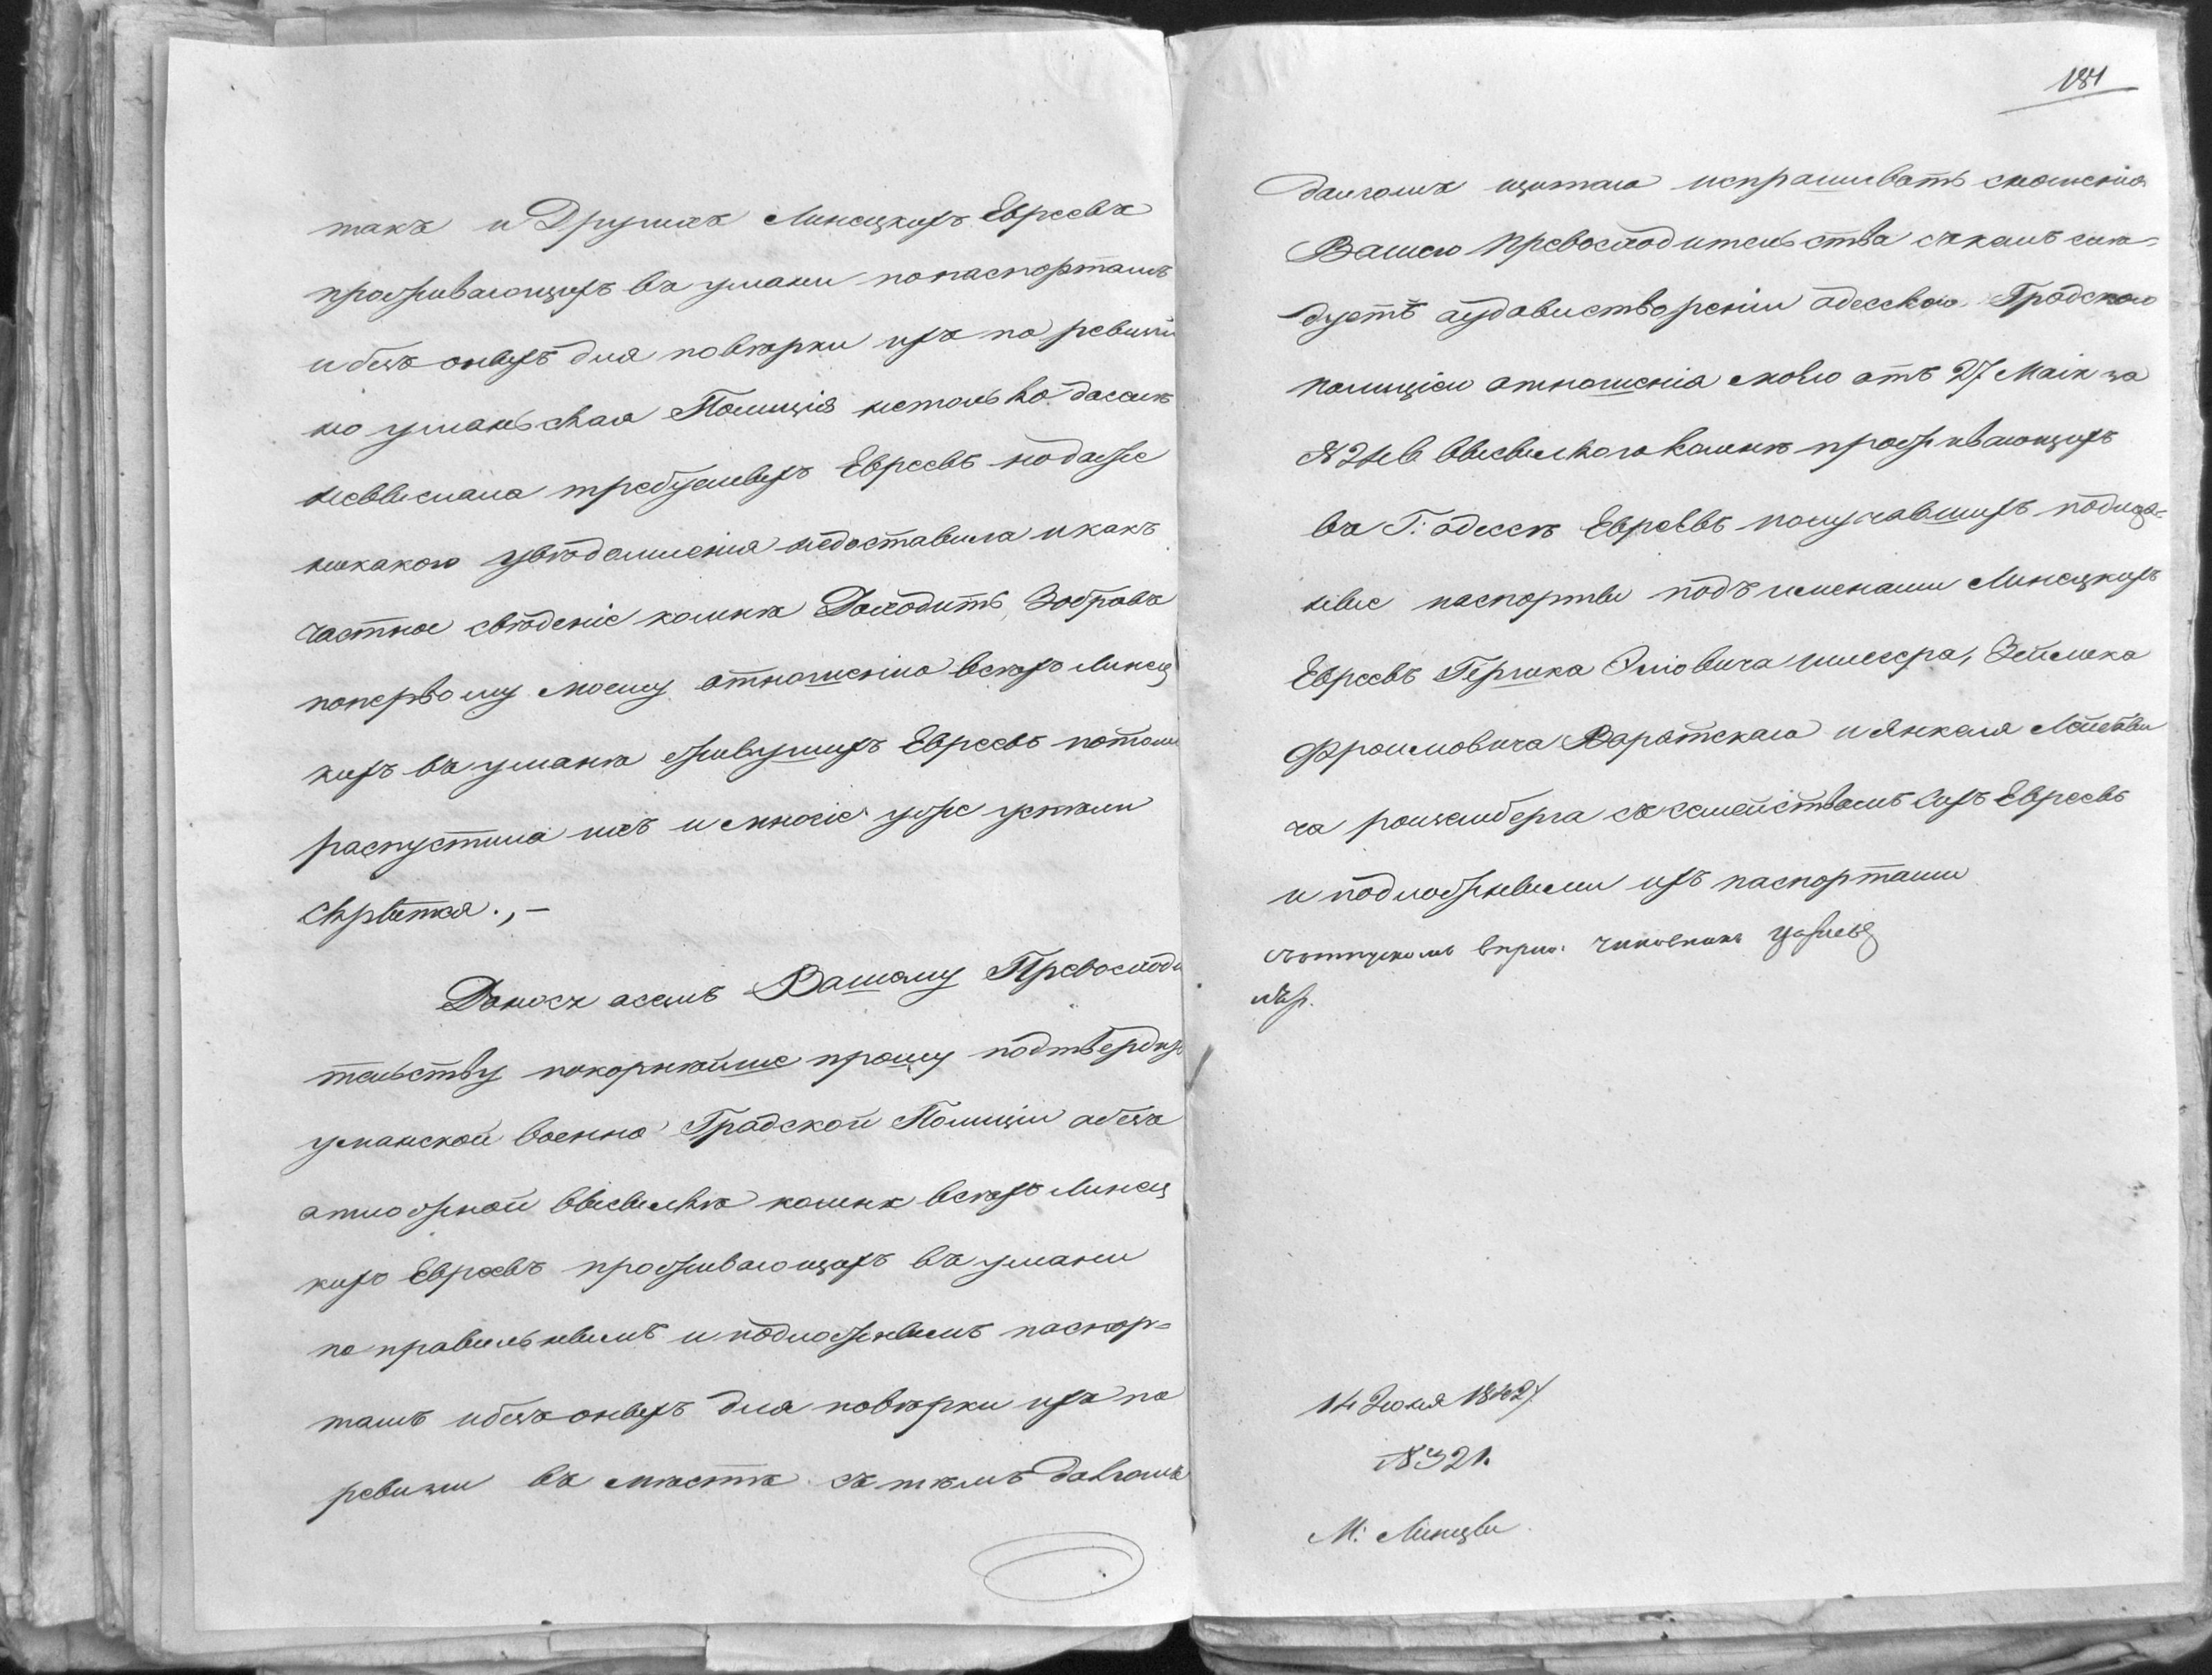 такъ и Другихъ Линецкихъ Евреевъ
проживающихъ въ умани попаспортамъ
и безъ оныхъ для повѣрки ихъ по ревизіи
но уманьская Полиція нетолько досель
невыслала требуемыхъ Евреевъ нодаже
никакого увѣдомленія недоставила и какъ
частное свѣденіе комнѣ Доходитъ
поперьвому моему отношенію всѣхъ Линец
кихъ въ уманѣ живущихъ Евреевъ потомъ
распустила ихъ и многіе уже успѣли
скрытся.,—
Вашему Превосходи
тельству покорнѣйше прошу подтвердить
уманской военно Градской Полиціи обезъ
отложной высылкѣ комнѣ всѣхъ Линец
кихъ Евреевъ проживающихъ въ умани
по правильнымъ и подложнымъ паспор=
тамъ ибезъ оныхъ для повѣрки ихъ по
ревизіи въ мѣстѣ съ тѣмъ долгомъ
181
долгомъ щитаю испрашивать сношенія
Вашего превосходительства съкемъ слѣ=
дуетъ оудовлетвореніи одесскою Градскою
полиціею отношенія моего отъ 27 Маія за
№ высылкою комнѣ проживающихъ
въ Г: одессѣ Евреевъ получавшихъ подлож=
ные паспорты подъ именами Линецкихъ
Евреевъ Гершка Зейлика
Фроимовича и Янкеля
ча съ семействомъ сихъ Евреевъ
и подложными ихъ паспортами
14 Іюня 1842/
№ 321.
М: Линцы